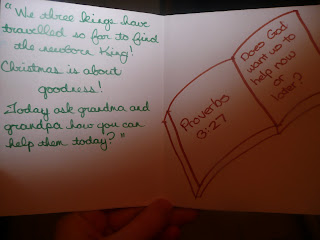 "We three kings have
travelled so far to find
the newborn King!
Christmas is about
goodness!
Today ask grandma and
grandpa how you can
help them today?"
Proverbs
3:27
Does God
want us to
help now
or
later?